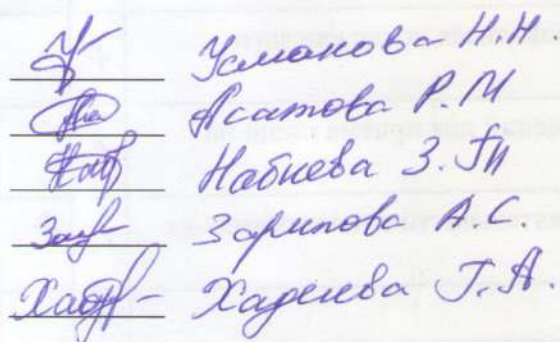 Усманова Н.Н.
Асатова Р.М
Набиева З.
Зарипова А.С.
Хадиева Г.А.